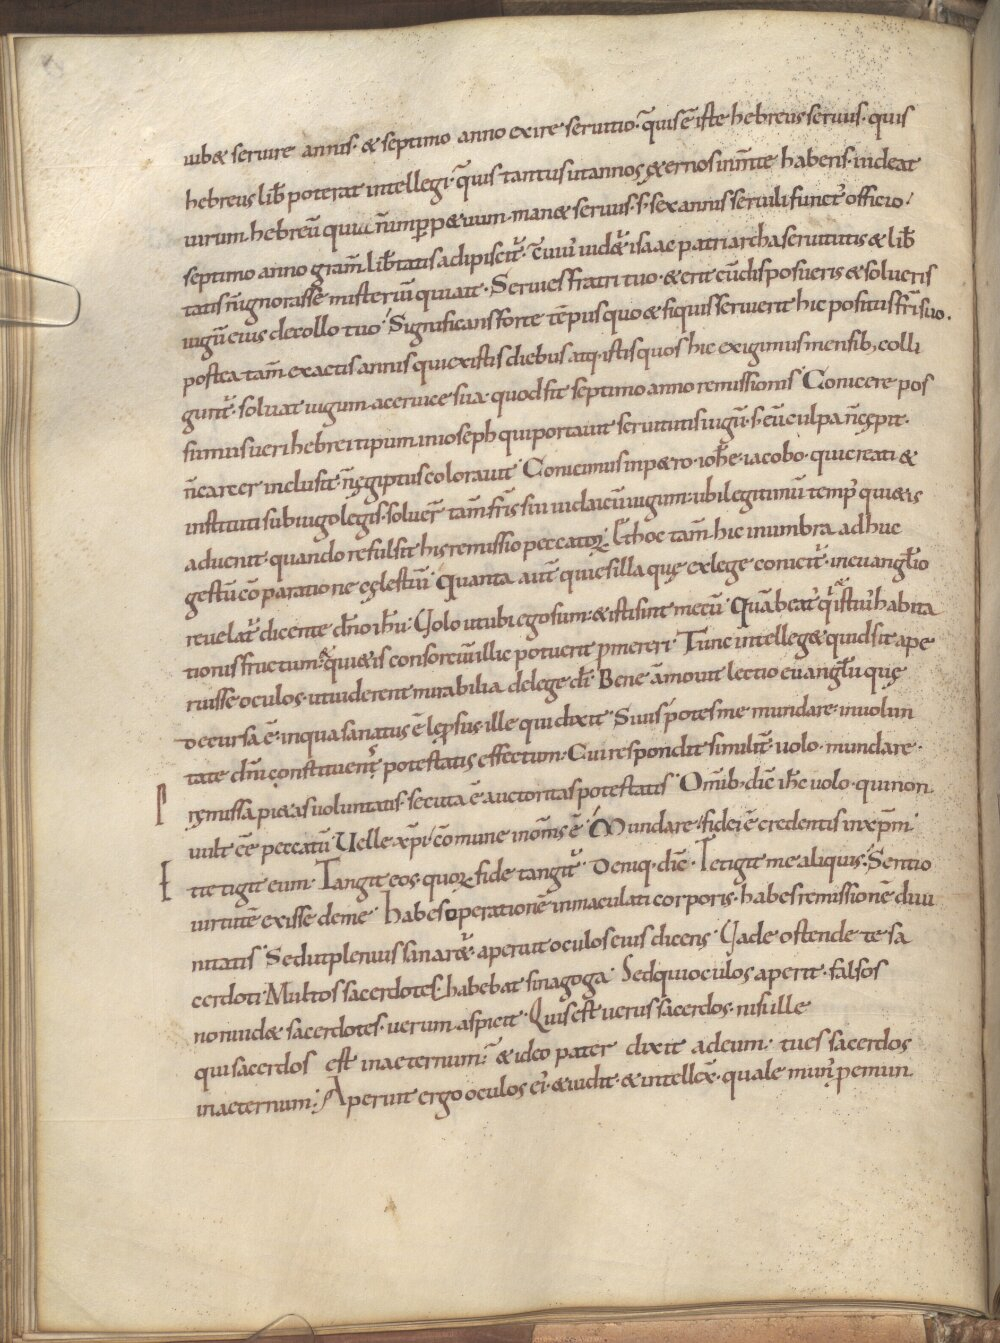 iubet seruire annis · & septimo anno exire seruitio · q̄uisē iste hebreus seruus · quis
hebreus lib̄ poterat intellegi · q̄uis tantus ut annos ęternos in m̄te habens · uideat
uirum · hebreū quia n̄ imp̱p&uum · man& seruus · s · sex annis seruuli funct᷒ officio ·
septimo anno gr̄am lib̄tatis adipiscit᷒ · uid&᷒ isaac patriarcha seruitutis & lib̄
tatis n̄ ignorasse misteriū qui ait · Seruies fratri tuo · & erit cū disposueris & solueris
iugū eius de collo tuo · Significans forte tēpus quo & si quis seruierit hic positus fr̄i suo ·
postea tam̄ exactis annis qui ex istis diebus atq · istis quos hic exigimus mensib; colli
gunt᷒ · soluat iugum a ceruice sua · quod fit septimo anno remissionis · Conicere pos
sumus ueri hebrei tipum in ioseph qui portauit seruitutis iugū · s · eū culpa n̄ cępit ·
n̄ carcer inclusit · n̄ ęgiptus colorauit · Conicimus in p&ro · ioh̄e · iacobo · qui creati &
instituti sub iugo legis · soluer̄ tam̄ fr̄is sui iudaicū iugum · ubi legitimū temp᷒ qui&is
aduenit · quando refulsit his remissio peccatoꝝ · & hoc tam̄ hic in umbra adhuc
gestū cō paratione cęlestiū · Quanta aut̄ quies illa quę ex lege conicit᷒ · in euangl̄io
reuelat᷒ dicente dn̄o ih̄u · Uolo ut ubi ego sum · & isti sint mecū · Quā beat᷒ q᷒ istiu᷒ habita
tionis fructum · qui&is consortiū illic potuerit p̱mereri · Tunc intelleg& quid sit ape
ruisse oculos · ut uiderent mirabilia de lege dī · Bene ām̄onuit lectio euangl̄ii quę
decursa ē · in qua sanatus ē lęprosus · ille qui dixit · Si uis potes me mundare · in uolun
tate dn̄i constituent᷒ potestatis effectum · Cui respondit similit̄ · uolo · mundare ·
Pręmissa pi&as uoluntatis · secuta ē auctoritas potestatis · Omīb; dic̄ ih̄c uolo · qui non
uult cē̄ peccatū · Uelle xp̄i cōmune in om̄s ē · Mundare · fidei ē credentis in xp̄m ·
Et tetigit eum · Tangit eos · quoꝝ fide tangit᷒ · Deniq · dic̄ · Tetigit me aliquis · Sentio
uirtutē exisse de me · Habes operationē inmaculati corporis · habes remissionē diui
nitatis · Sed ut plenius sanar&᷒ · aperuit oculos eius dicens · Uade ostende te sa
cerdoti · Multos sacerdotes habebat sinagoga · Sed qui oculos aperit · falsos
non uid& sacerdotes · uerum aspicit · Quis est uerus sacerdos · nisi ille
qui sacerdos est in aeternum · & ideo pater dixit ad eum · tu es sacerdos
in aeternum · Aperuit ergo oculos ei᷒ · & uidit · & intellex̄ · quale mun᷒ p̱ emun